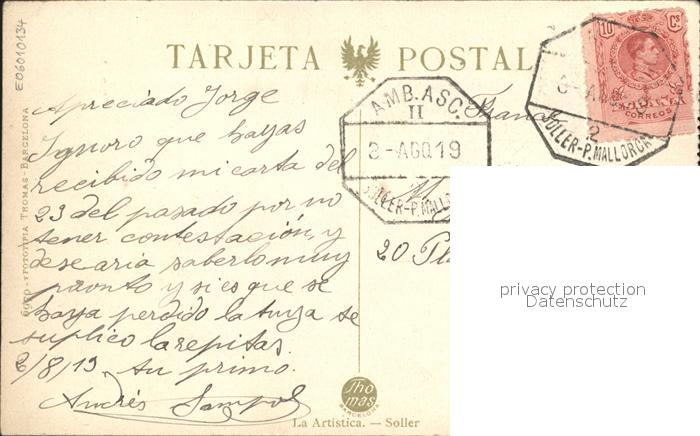 E06010134
TARJETA POSTAL
10 Cs
CORREOS
AMB. ASC.
II
3-AGO.19
SOLLER-P. MALLO
2
SOLLER-P. MALLORCA
Apreciado Jorge
Ignoro que hayas
recibido mi carta del
23 del pasado por no
tener contestación, y
desearia saberlo muy
pronto y si es que se
haya perdido la tuya se
suplico la repitas.
2/8/19. tu primo.
Andrés Sampol
20 Pl
FOTO-TIPOTIPIA THOMAS-BARCELONA
Thomas
BARCELONA
La Artística. — Soller
privacy protection
Datenschutz